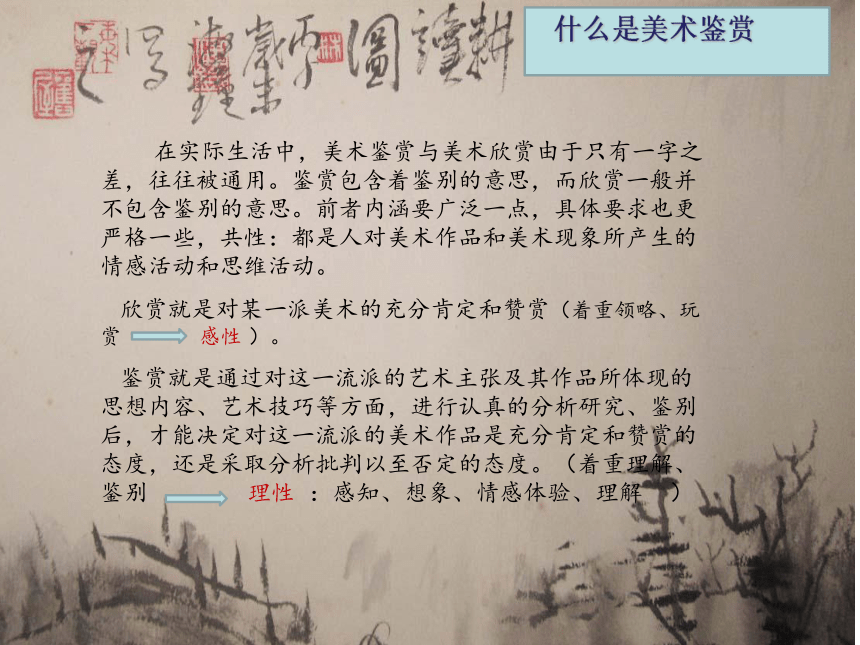 什么是美术鉴赏
耕讀圖
在实际生活中，美术鉴赏与美术欣赏由于只有一字之
差，往往被通用。鉴赏包含着鉴别的意思，而欣赏一般并
不包含鉴别的意思。前者内涵要广泛一点，具体要求也更
严格一些，共性：都是人对美术作品和美术现象所产生的
情感活动和思维活动。
欣赏就是对某一派美术的充分肯定和赞赏（着重领略、玩
赏 感性 ）。
鉴赏就是通过对这一流派的艺术主张及其作品所体现的
思想内容、艺术技巧等方面，进行认真的分析研究、鉴别
后，才能决定对这一流派的美术作品是充分肯定和赞赏的
态度，还是采取分析批判以至否定的态度。（着重理解、
鉴别 理性 ：感知、想象、情感体验、理解 ）